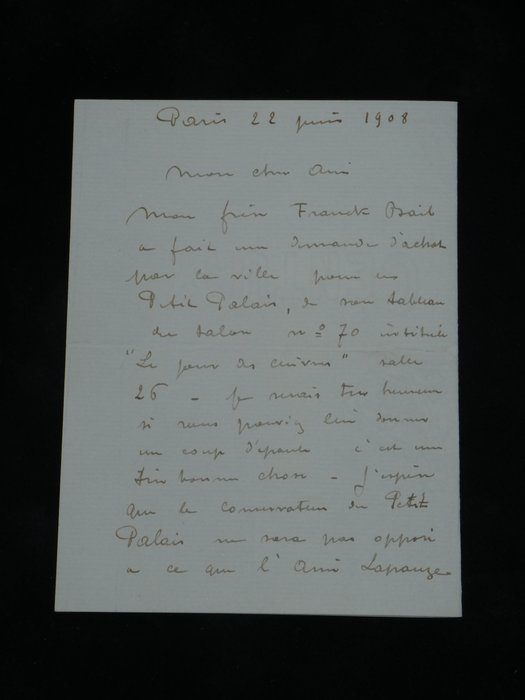 Paris 22 juin 1908
Mon cher Ami
Mon frère Franck Bail
a fait une demande d'achat
par la ville pour le
Petit Palais, de son tableau
du Salon nº 70 intitulé
"Le jour des cuivres" salle
26 - Je serais très heureux
si vous pouviez lui donner
un coup d'épaule c'est une
très bonne chose - J'espère
que le conservateur du Petit
Palais ne sera pas opposé
a ce que l'Ami Lapauze